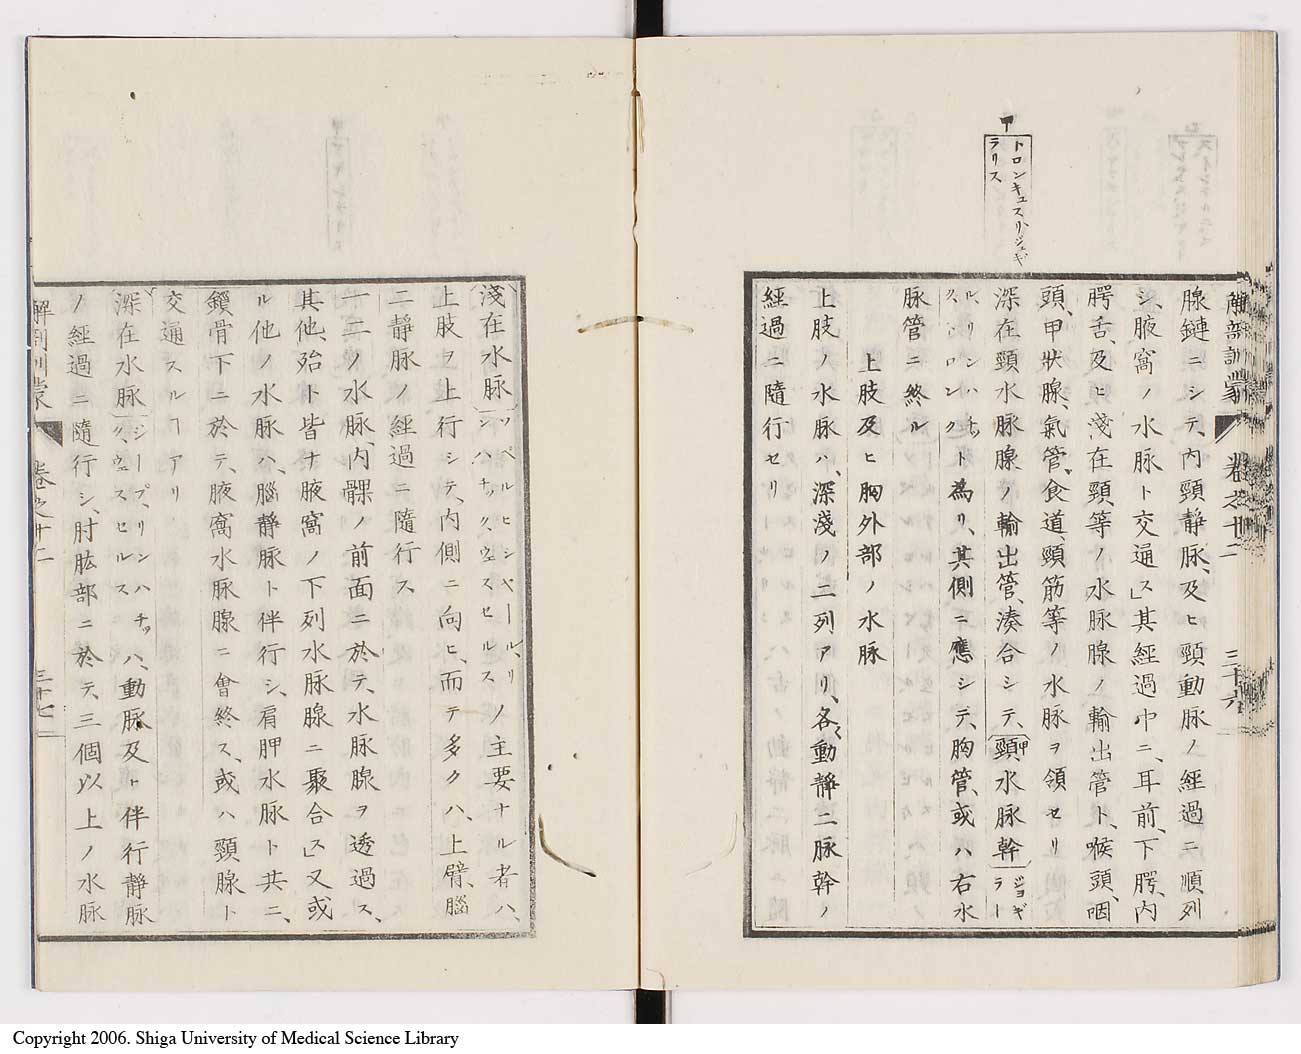 甲
トロンキュスリジュギ
ラリス
解剖訓蒙 卷之十二 三十六
腺鏈ニシテ、内頸靜脉、及ヒ頸動脉ノ經過ニ順列
シ、腋窩ノ水脉ト交通ス」其經過中ニ、耳前、下腭、内
腭舌、及ヒ淺在頸等ノ水脉腺ノ輸出管ト、喉頭、咽
頭、甲狀腺、氣管、食道、頸筋等ノ水脉ヲ領セリ
深在頸水脉腺ノ輸出管、湊合シテ、甲頸水脉幹ジョギラー
ル、リンハチクストロンクト為リ、其側ニ應シテ、胸管、或ハ右水
脉管ニ終ル
上肢及ヒ胸外部ノ水脉
上肢ノ水脉ハ、深淺ノ二列アリ、各動靜二脉幹ノ
經過ニ隨行セリ
淺在水脉ヲペルヒシヤール、リンハチックウェスセルスノ主要ナル者ハ、
上肢ヲ上行シテ、内側ニ向ヒ、而テ多クハ、上臂、腦
二靜脉ノ經過ニ隨行ス
一二ノ水脉、内髁ノ前面ニ於テ、水脉腺ヲ透過ス、
其他、殆ト皆ナ腋窩ノ下列水脉腺ニ聚合ス」又或
ル他ノ水脉ハ、腦靜脉ト伴行シ、肩胛水脉ト共ニ、
鎖骨下ニ於テ、腋窩水脉腺ニ會終ス、或ハ頸腺ト
交通スルコアリ
深在水脉ジープ、リンハチックウェスセルスハ、動脉及ヒ伴行靜脉
ノ經過ニ隨行シ、肘肱部ニ於テ、三個以上ノ水脉
解剖訓蒙 卷之十二 三十七
Copyright 2006. Shiga University of Medical Science Library